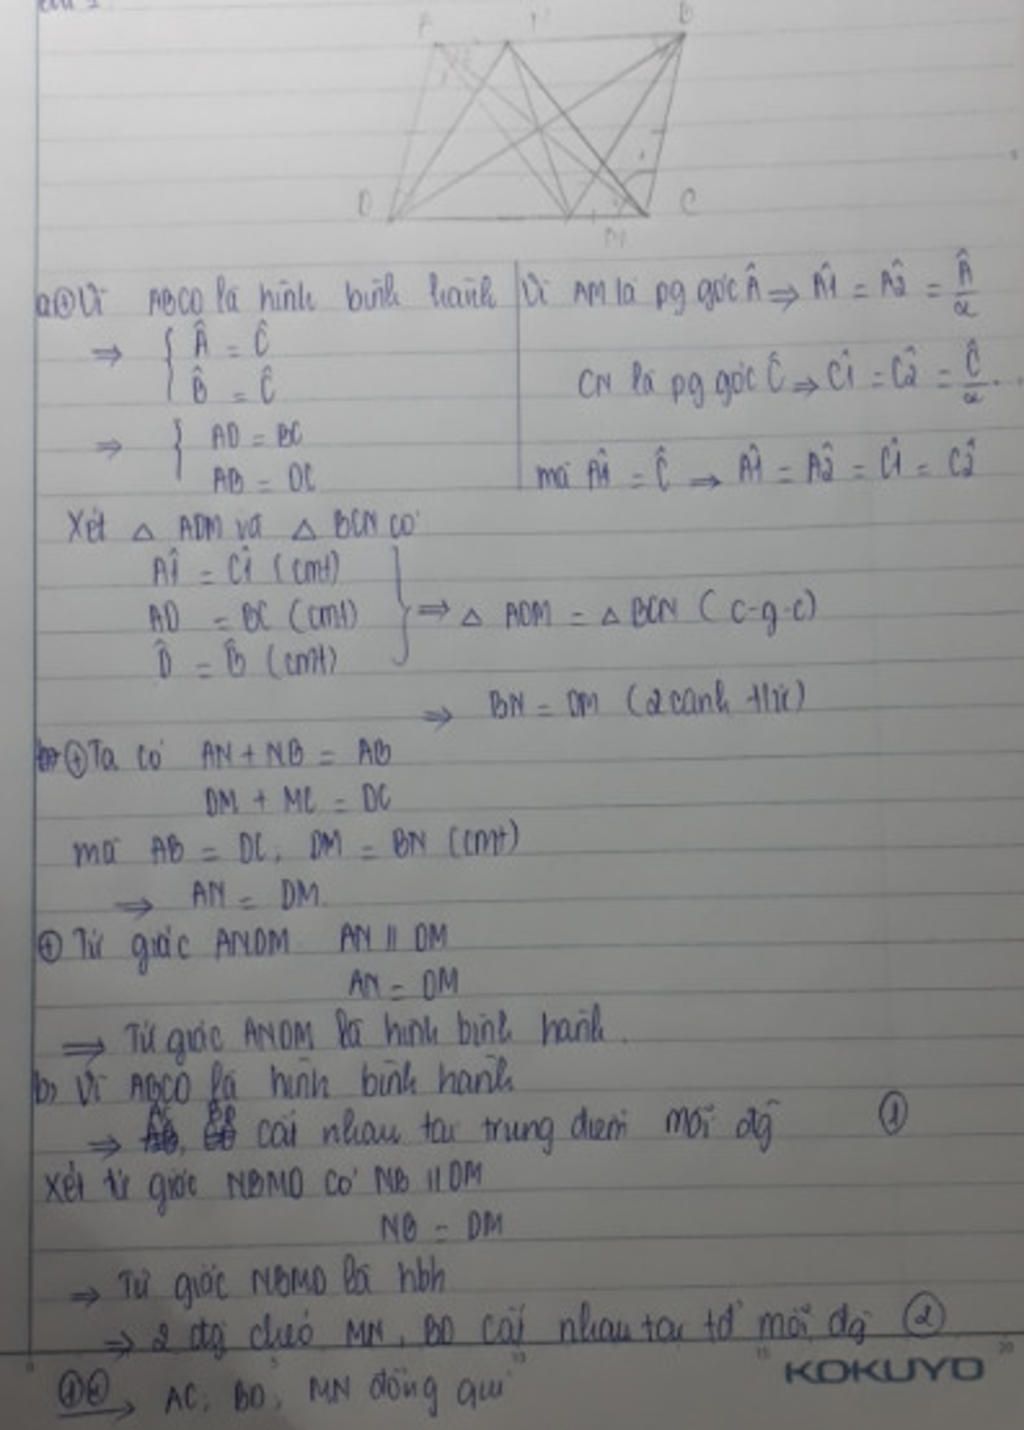 D C
M
a) ⊕ Vì ABCD là hình bình hành
⇒ { Â = Ĉ
B̂ = Ĉ
⇒ { AD = BC
AB = DC
Vì AM là pg góc Â ⇒ Â1 = Â2 = Â/2
CN là pg góc Ĉ ⇒ Ĉ1 = Ĉ2 = Ĉ/2
mà Â1 = Ĉ → Â1 = Â2 = Ĉ1 = Ĉ2
Xét △ ADM và △ BCN có
Â1 = Ĉ1 (cmt)
AD = BC (cmt)
D̂ = B̂ (cmt)
⇒ △ ADM = △ BCN (c-g-c)
⇒ BN = DM (2 cạnh t/ứ)
⊕ Ta có AN + NB = AB
DM + MC = DC
mà AB = DC, DM = BN (cmt)
⇒ AN = DM.
⊕ Tứ giác ANDM AN // DM
AN = DM
⇒ Tứ giác ANDM là hình bình hành.
b) Vì ABCD là hình bình hành
⇒ AC, BD cắt nhau tại trung điểm mỗi đg ①
Xét tứ giác NBMD có NB // DM
NB = DM
⇒ Tứ giác NBMD là hbh
⇒ 2 đg chéo MN, BD cắt nhau tại tđ mỗi đg ②
①② → AC, BD, MN đồng qui
KOKUYO